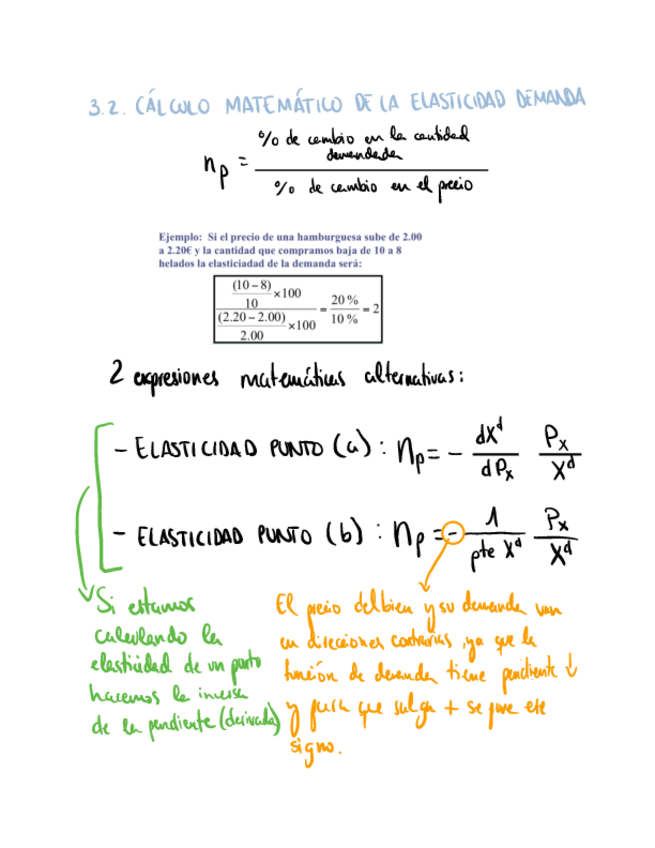 3.2. CÁLCULO MATEMÁTICO DE LA ELASTICIDAD DEMANDA
% de cambio en la cantidad
demandada
np =
% de cambio en el precio
Ejemplo: Si el precio de una hamburguesa sube de 2.00
a 2.20€ y la cantidad que compramos baja de 10 a 8
helados la elasticiadad de la demanda será:
(10 – 8)/10 ×100 / (2.20 – 2.00)/2.00 ×100 = 20 % / 10 % = 2
2 expresiones matemáticas alternativas:
- ELASTICIDAD PUNTO (a): np = - dX^d/dPx Px/X^d
- ELASTICIDAD PUNTO (b): np = - 1/pte X^d Px/X^d
Si estamos
calculando la
elasticidad de un punto
hacemos la inversa
de la pendiente (derivada)
El precio del bien y su demanda van
en direcciones contrarias, ya que la
función de demanda tiene pendiente ↓
y para que salga + se pone ese
signo.